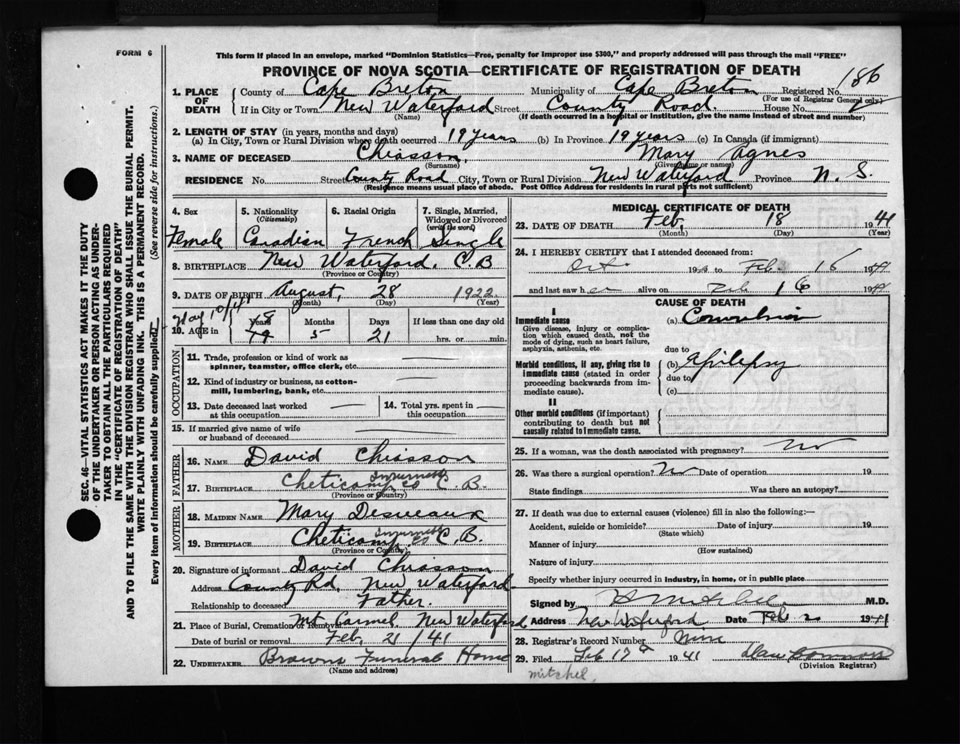 FORM 6
This form if placed in an envelope, marked "Dominion Statistics—Free, penalty for improper use $300," and properly addressed will pass through the mail "FREE"
PROVINCE OF NOVA SCOTIA—CERTIFICATE OF REGISTRATION OF DEATH
186
1. PLACE OF DEATH County of Cape Breton Municipality of Cape Breton Registered No.
(For use of Registrar General only)
If in City or Town New Waterford Street County Road. House No.
(Name) (If death occurred in a hospital or institution, give the name instead of street and number)
2. LENGTH OF STAY (in years, months and days)
(a) In City, Town or Rural Division where death occurred 19 years (b) In Province 19 years (c) In Canada (if immigrant)
3. NAME OF DECEASED Chiasson, Mary Agnes
(Surname) (Given name or names)
RESIDENCE No. Street County Road City, Town or Rural Division New Waterford Province N. S.
(Residence means usual place of abode. Post Office Address for residents in rural parts not sufficient)
4. Sex 5. Nationality (Citizenship) 6. Racial Origin 7. Single, Married, Widowed or Divorced (write the word)
Female Canadian French Single
8. BIRTHPLACE New Waterford, C.B
(Province or Country)
9. DATE OF BIRTH August, 28 1922
(Month) (Day) (Year)
10. AGE in Years Months Days If less than one day old
5 21 hrs. or min.
OCCUPATION
11. Trade, profession or kind of work as spinner, teamster, office clerk, etc.
12. Kind of industry or business, as cotton-mill, lumbering, bank, etc.
13. Date deceased last worked at this occupation
14. Total yrs. spent in this occupation
15. If married give name of wife or husband of deceased
FATHER
16. NAME David Chiasson
17. BIRTHPLACE Cheticamp Inverness Co C. B.
(Province or Country)
MOTHER
18. MAIDEN NAME Mary Desveaux
19. BIRTHPLACE Cheticamp Inverness Co C.B.
(Province or Country)
20. Signature of informant David Chiasson
Address County Rd, New Waterford
Relationship to deceased Father.
21. Place of Burial, Cremation or Removal Mt Carmel New Waterford
Date of burial or removal Feb, 21/41
22. UNDERTAKER Browns Funeral Home
(Name and address)
MEDICAL CERTIFICATE OF DEATH
23. DATE OF DEATH Feb, 18 1941
(Month) (Day) (Year)
24. I HEREBY CERTIFY that I attended deceased from:
Oct 19 to Feb. 16 19
and last saw her alive on Feb 16 19
CAUSE OF DEATH
I
Immediate cause (a) Convulsion
Give disease, injury or complication which caused death, not the mode of dying, such as heart failure, asphyxia, asthenia, etc.
due to
Morbid conditions, if any, giving rise to immediate cause (stated in order proceeding backwards from immediate cause). (b) Epilepsy
due to
(c)
II
Other morbid conditions (if important) contributing to death but not causally related to immediate cause.
25. If a woman, was the death associated with pregnancy? no
26. Was there a surgical operation? No Date of operation 19
State findings Was there an autopsy?
27. If death was due to external causes (violence) fill in also the following:—
Accident, suicide or homicide? Date of injury 19
(State which)
Manner of injury
(How sustained)
Nature of injury
Specify whether injury occurred in industry, in home, or in public place
Signed by M.D.
Address New Waterford Date Feb 1941
28. Registrar's Record Number
29. Filed Feb 17th 1941
(Division Registrar)
mitchel,
SEC. 46—VITAL STATISTICS ACT MAKES IT THE DUTY
OF THE UNDERTAKER OR PERSON ACTING AS UNDER-
TAKER TO OBTAIN ALL THE PARTICULARS REQUIRED
IN THE "CERTIFICATE OF REGISTRATION OF DEATH"
AND TO FILE THE SAME WITH THE DIVISION REGISTRAR WHO SHALL ISSUE THE BURIAL PERMIT.
WRITE PLAINLY WITH UNFADING INK. THIS IS A PERMANENT RECORD.
Every item of information should be carefully supplied. (See reverse side for instructions.)